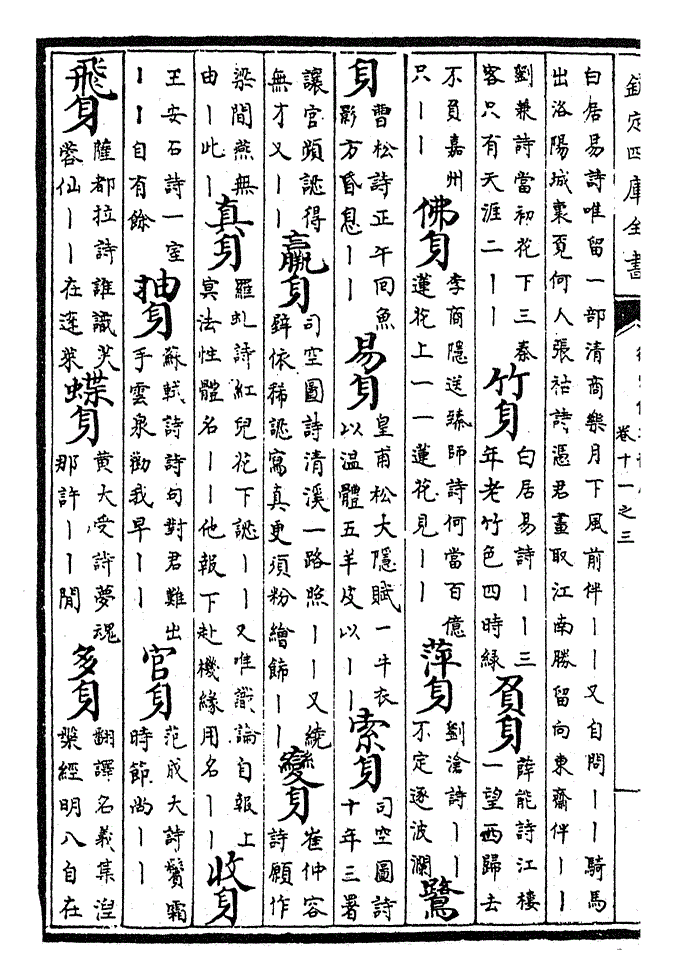 欽定四庫全書
卷十一之三
白居易詩唯留一部清商樂月下風前伴丨丨又自問丨丨騎馬
出洛陽城裏覔何人張祜詩憑君畫取江南勝留向東齋伴丨丨
劉兼詩當初花下三秦
客只有天涯二丨丨
竹身
白居易詩丨丨三
年老竹色四時緑
負身
薛能詩江樓
一望西歸去
不負嘉州
只丨丨
佛身
李商隱送臻師詩何當百億
蓮花上一一蓮花見丨丨
萍身
劉滄詩丨丨
不定逐波瀾
鷺
身
曹松詩正午回魚
影方昏息丨丨
易身
皇甫松大隱賦一牛衣
以温體五羊皮以丨丨
索身
司空圖詩
十年三署
讓官頻認得
無才又丨丨
羸身
司空圖詩清溪一路照丨丨又繞
辥依稀認寫真更須粉繪飾丨丨
變身
崔仲容
詩願作
梁間燕無
由丨此丨
真身
羅虬詩紅兒花下認丨丨又唯識論自報上
冥法性體名丨丨他報下赴機緣用名丨丨
收身
王安石詩一室
丨丨自有餘
抽身
蘇軾詩詩句對君難出
手雲泉勸我早丨丨
官身
范成大詩鬢霜
時節尚丨丨
飛身
薩都拉詩誰識芙
蓉仙丨丨在蓬萊
蝶身
黄大受詩夢魂
那許丨丨閒
多身
翻譯名義集湼
槃經明八自在